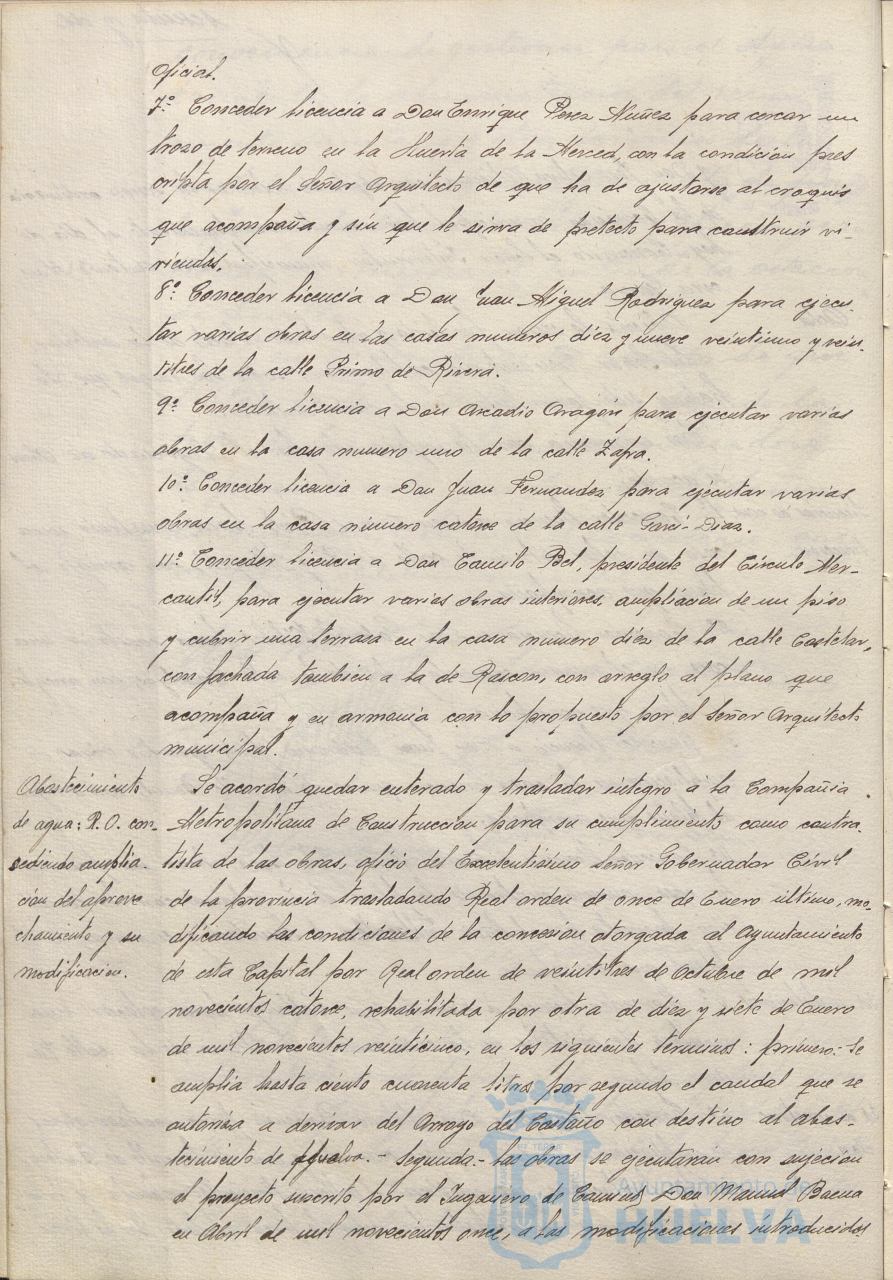 oficial.
7º Conceder licencia a Don Enrique Perez Nuñez para cercar un
trozo de terreno en la Huerta de la Merced, con la condicion pres
cripta por el Señor Arquitecto de que ha de ajustarse al croquis
que acompaña y sin que le sirva de pretecto para construir vi-
viendas.
8º Conceder licencia a Don Juan Miguel Rodriguez para ejecu-
tar varias obras en las casas numeros diez y nueve veintiuno y vein-
titres de la calle Primo de Rivera.
9º Conceder licencia a Don Arcadio Aragón para ejecutar varias
obras en la casa numero uno de la calle Zafra.
10º Conceder licencia a Don Juan Fernandez para ejecutar varias
obras en la casa número catorce de la calle Garci-Diaz.
11º Conceder licencia a Don Camilo Bel, presidente del Círculo Mer-
cantil, para ejecutar varias obras interiores, ampliacion de un piso
y cubrir una terraza en la casa numero diez de la calle Castelar,
con fachada tambien a la de Rascon, con arreglo al plano que
acompaña y en armonia con lo propuesto por el Señor Arquitecto
municipal.
Abastecimiento
de agua: R.O. con-
cediendo amplia-
ción del aprove
chamiento y su
modificacion.
Se acordó quedar enterado y trasladar integro á la Compañia
Metropolitana de Construccion para su cumplimiento como contra-
tista de las obras, oficio del Excelentisimo Señor Gobernador Civil
de la provincia trasladando Real orden de once de Enero último, mo-
dificando las condiciones de la concesion otorgada al Ayuntamiento
de esta Capital por Real orden de veintitres de Octubre de mil
novecientos catorce, rehabilitada por otra de diez y siete de Enero
de mil novecientos veinticinco, en los siguientes terminos: primero:- Se
amplia hasta ciento cuarenta litros por segundo el caudal que se
autoriza a derivar del Arroyo del Castaño con destino al abas-
tecimiento de Huelva.- Segunda.- Las obras se ejecutarán con sujecion
al proyecto suscrito por el Ingeniero de Caminos Don Manuel Baena
en Abril de mil novecientos once, a las modificaciones introducidas
Ayuntamiento de
HUELVA